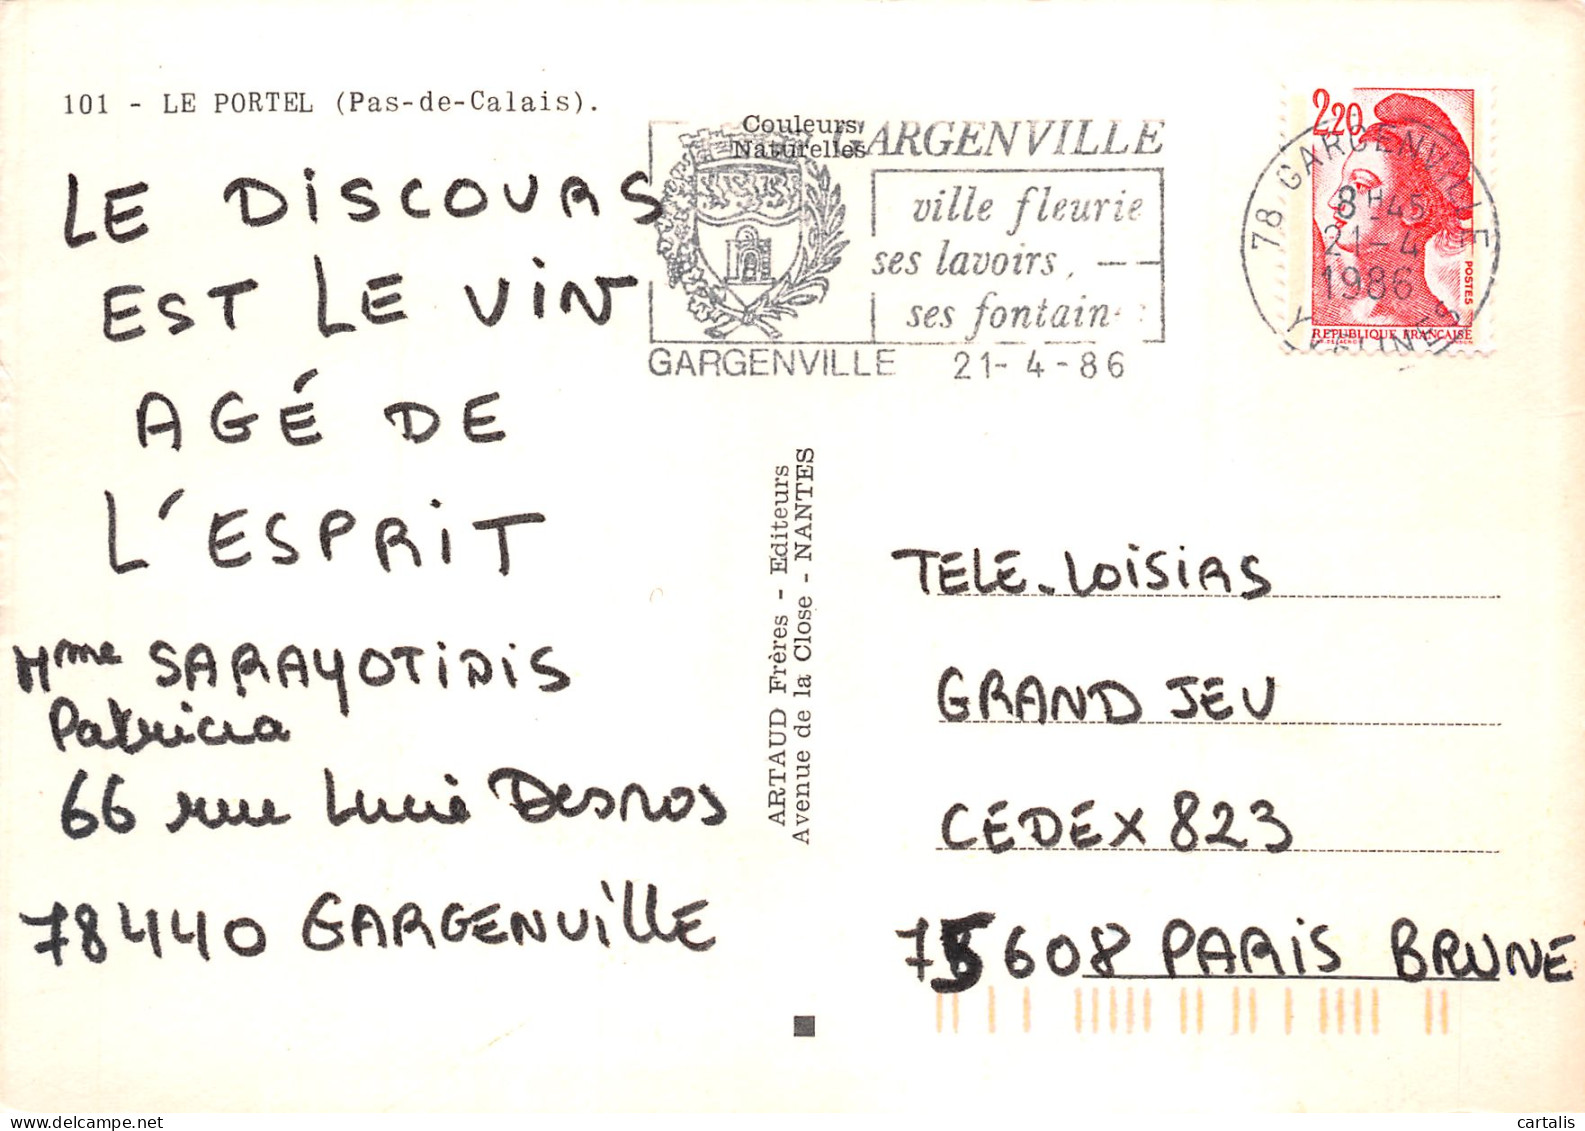 101 - LE PORTEL (Pas-de-Calais).
Couleurs
Naturelles
GARGENVILLE
ville fleurie
ses lavoirs,
ses fontain
GARGENVILLE 21-4-86
2,20
78 GARGENVILLE
8H45
21-4
1986
YVELINES
POSTES
REPUBLIQUE FRANÇAISE
LE DISCOURS
EST LE VIN
AGÉ DE
L'ESPRIT
Mme SARAYOTIDIS
Patricia
66 rue Lucie Desnos
78440 GARGENVILLE
ARTAUD Frères - Editeurs
Avenue de la Close - NANTES
TELE-LOISIRS
GRAND JEU
CEDEX 823
75608 PARIS BRUNE
cartalis